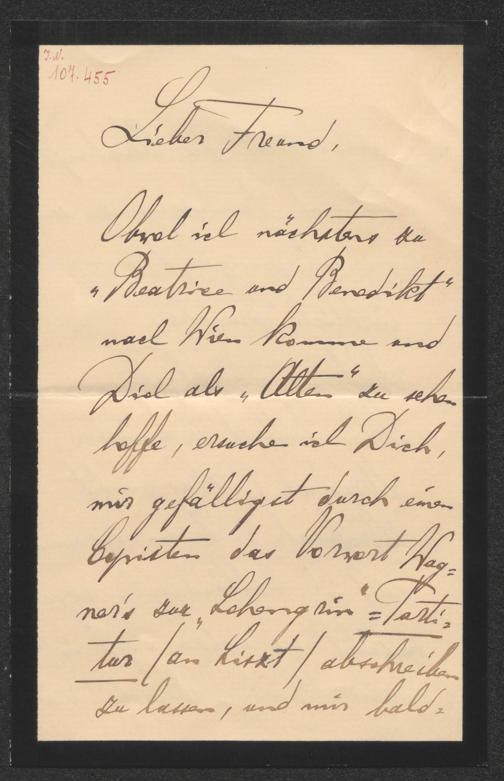 I.N.
107.455
Lieber Freund,
Obwol ich nächstens zu
„Beatrice und Benedikt“
nach Wien komme und
Dich als „Alten“ zu sehen
hoffe, ersuche ich Dich,
mir gefälligst durch einen
Copisten das Vorwort Wag=
ner's zur „Lohengrin“=Parti=
tur /an Liszt/ abschreiben
zu lassen, und mir bald=